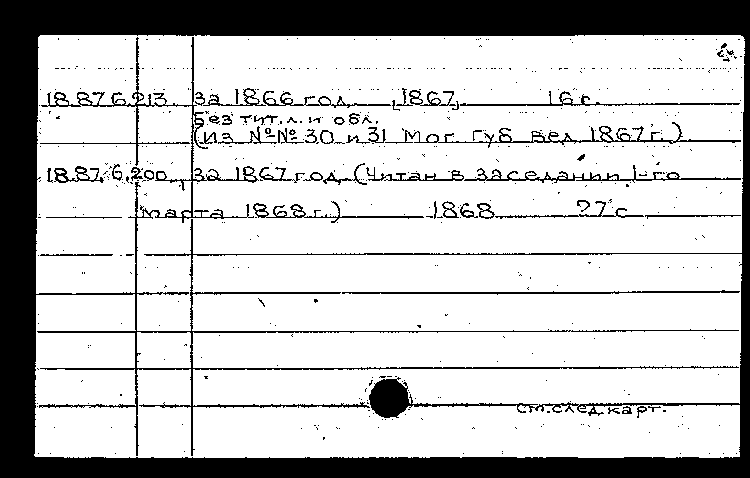 18.87.6.213. за 1866 год. [1867]. 16 с.
Без тит. л. и обл.
(Из №№ 30 и 31 Мог. Губ. Вед. 1867 г.)
18.87.6.200. за 1867 год. (Читан в заседании 1-го
марта 1868 г.) 1868 27 с.
См. след. карт.